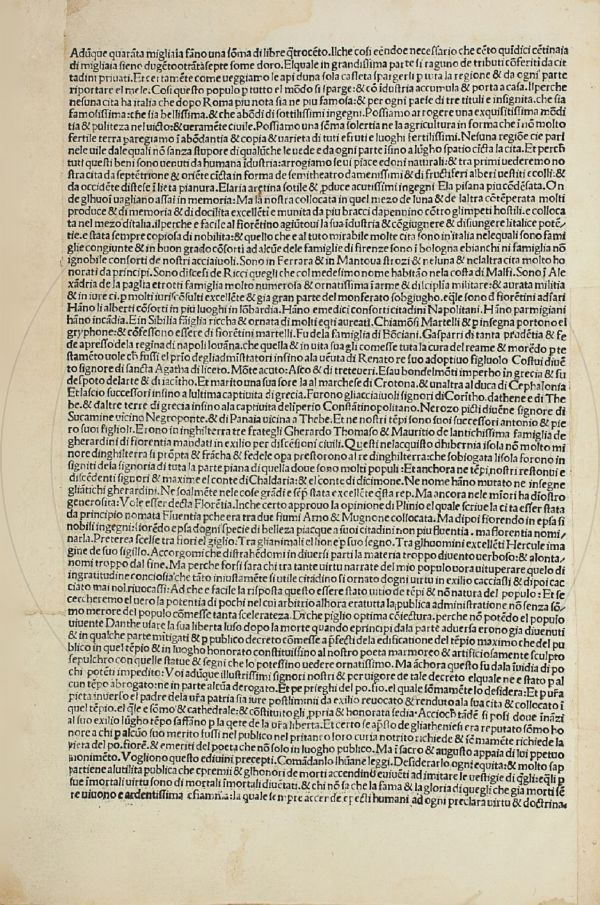 Adūque quarāta migliaia fāno una sōma di libre q̄troceto. Ilche cosi eēdoe necessario che cēto quīdici cētinaia
di migliaia sieno dugētootrātasepte some doro. Elquale in grandissima parte si raguno de tributi cōferiti da cit
tadini priuati. Et certamēte come ueggiamo le api duna sola casseta spargersi p tuta la regione & da ogni parte
riportare el mele. Cosi questo populo p tutto el mōdo si sparge: & cō īdustria accumula & porta a casa. Ilperche
nesuna cita ha italia che dopo Roma piu nota sia ne piu famosa: & per ogni paese di tre tituli e insignita. che sia
famosissima: che sia bellissima. & che abōdi di sottilissimi ingegni. Possiamo arrogere una exquisitissima mōdi
tia & puliteza nel uicto: & ueramēte ciuile. Possiamo una sōma solertia ne la agricultura in forma che ī nō molto
fertile terra paregiamo ī abōdantia & copia & uarieta di tuti e fruti e luoghi fertilissimi. Nesuna regiōe cie pari
nele uile dale quali nō sanza stupore di qualūche le uede e da ogni parte īsino a lūgho spatio cīcta la cita. Et perch
tuti questi beni sono uenuti da humana īdustria: arrogiamo se ui piace e doni naturali: & tra primi uederemo no
stra cita da septētrione & oriēte cīcta in forma de semitheatro damenissimi & di fructiferi alberi uestiti ecolli: &
da occidēte distese ī lieta pianura. Elaria aretina sotile & pduce acutissimi ingegni Ela pisana piu cōdēsata. On
de glhuoī uagliano assai in memoria: Ma la nostra collocata in quel mezo de luna & de laltra cōtēperata molti
produce & di memoria & di docilita excellēti e munita da piu bracci dapennino cōtro glimpeti hostili. e colloca
ta nel mezo ditalia. ilperche e facile al fiorētino agiūtoui la sua īdustria & cōgiugnere & disiungere litalice potē
tie. e stata sempre copiosa di nobilita: & quello che e al tuto mirabile molte cita sono in italia nelequali sono fami
glie congiunte & in buon grado cōsorti ad alcūe dele famiglie di firenze sono ī bologna ebianchi ni famiglia nō
ignobile consorti de nostri acciaiuoli. Sono in Ferrara & in Mantoua strozi & neluna & nelaltra cita molto ho
norati da principi. Sono discesi de Ricci quegli che col medesimo nome habitāo nela costa di Malfi. Sono ī Ale
xādria de la paglia etrotti famiglia molto numerosa & ornatissima ī arme & disciplia militare: & aurata militia
& in iure ci. p molti iuriscōsulti excellēte & gia gran parte del monferato sobgiugho. eq̄le sono di fiorētini adfari
Hāno li alberti cōsorti in piu luoghi in lōbardia. Hāno emedici consorti citadini Napolitani. Hāno parmigiani
hāno īncādia. E in Sibilia faīglia riccha & ornata di molti eqti aureati. Chiamōsi Martelli & p insegna portono el
gryphone: & cōfessono essere di fiorētini martelli. Fu de la famiglia di Bōciani. Gasparri di tanta prudētia & fe
de apresso dela regina di napoli Iouāna. che quella & in uita sua gli comesse tuta la cura del reame & morēdo p te
stamēto uole ch fussi el prīo degliadmīstratori insino ala ueuta di Renato re suo adoptiuo figluolo Costui diuē
to signore di sancta Agatha di liceto. Mōte acuto: Asco & di treteueri. Esau bondelmōti imperho in grecia & fu
despoto delarte & di iacītho. Et marito una sua sore la al marchese di Crotona. & unaltra al duca di Cephalonia
Et lascio successori infino a lultima captiuita di grecia. Furono gliacciaiuoli signori di Corītho. dathene e di The
be. & daltre terre di grecia insino ala captiuita delīperio Cōstātinopolitano. Nerozo picti diuēne signore di
Sucamine uicino Negroponte. & di Panaia uicina a Thebe. Et ne nostri tēpi sono suoi successori antonio & pie
ro suoi figlioli. Erono in inghilterra tre frategli Gherardo Thomaso & Mauritio de lantichissima famiglia de
gherardini di fiorentia mandati in exilio per discēsioni ciuili. Questi nelacquisto dhibernia isola nō molto mi
nore dinghilterra si prōpta & frācha & fedele opa prestorono al re dinghilterra: che sobiogata lisola forono in
signiti dela signoria di tuta la parte piana di quella doue sono molti populi: Et anchora ne tēpi nostri restono ui e
discēdenti signori & maxime el conte di Chaldaria: & el conte di dicimone. Ne nome hāno mutato ne insegne
gliātichi gherardini. Ne soalmēte nele cose grādi e sēp stata excellēte q̄sta rep. Ma ancora nele mīori ha dīostro
generosita: Vole esser decta Florētia. Inche certo approuo la opinione di Plinio el quale scriue la cita esser stata
da principio nomata Fluentia pche era tra due fiumi Arno & Mugnone collocata. Ma dipoi fiorendo in epsa si
nobili ingegni: fiorēdo epsa dogni specie di belleza piacque a suoi citadini non piu fluentia. ma florentia nomi/
narla. Preterea scelse tra fiori el giglio. Tra glianimali el lione p suo segno. Tra glhuomini excellēti Hercule ima
gine de suo sigillo. Accorgomi che distrahēdomi in diuersi parti la materia troppo diuento uerboso: & alonta/
nomi troppo dal fine. Ma perche forsi sara chi tra tante uirtu narrate del mio populo uora uituperare quelo di
ingratitudine conciosia che tāto iniustamēte si utile citadino si ornato dogni uirtu in exilio cacciassi & dipoi cac
ciato mai nol riuocassi: Ad che e facile la risposta questo essere stato uitio de tēpi & nō natura del populo: Et se
cercheremo el uero la potentia di pochi nel cui arbitrio alhora eratutta la publica administratione nō senza sō/
mo merore del populo cōmesse tanta scelerateza. Di che piglio optima cōiectura. perche nō potēdo el populo
uiuente Danthe usare la sua liberta luso dopo la morte quando eprincipi dala parte aduersa erono gia diuenuti
& in qualche parte mitigati & p publico decreto cōmesse a pfecti dela edificatione del tēpio maximo che del pu
blico in quel tēpio & in luogho honorato constituissino al nostro poeta marmoreo & artificiosamente sculpto
sepulchro con quelle statue & segni che lo potessino uedere ornatissimo. Ma āchora questo fu da la īuidia di po
chi potēti impedito: Voi adūque illustrissimi signori nostri & per uigore de tale decreto elquale ne e stato p al
cun tēpo abrogate: ne in parte alcūa derogato. Et pe prieghi del po. fio. el quale sōmamēte lo desidera: Et p ur̄a
pieta inuerso el padre dela ur̄a patria sia iure postlimini da exilio reuocato & rendutо ala sua cita & collocato ī
quel tēpio. el q̄le e sōmo & cathedrale: & cōstituitogli. ppria & honorata sedia: Accioch tādē si posi doue īnāzi
al suo exilio lūgho tēpo fassāno p la q̄ete de la ur̄a liberta. Et certo se apso de gliatheniesi era reputato sōmo ho
nore a chi p alcūo suo merito fussi nel publico nel pritaneo loro curia notrito richiede & sōmamēte richiede la
pieta del po. fiorē. & emeriti del poeta che nō solo in luogho publico. Ma ī sacro & augusto appaia di lui ppetuo
monimēto. Vogliono questo ediuini precepti. Comādanlo lhūane leggi. Desiderarlo ogni equita: & molto sap
partiene alutilita publica che epremii & glhonori de morti accendino euiuēti ad imitare le uestigie di q̄gli: eq̄li p
fue immortali uirtu sono di mortali īmortali diuētati. & chi nō sa che la fama & la gloria di quegli che gia morti sē
re uiuono e ardentissima fiamma: la quale sempre accende epecti humani ad ogni preclara uirtu & doctrina.